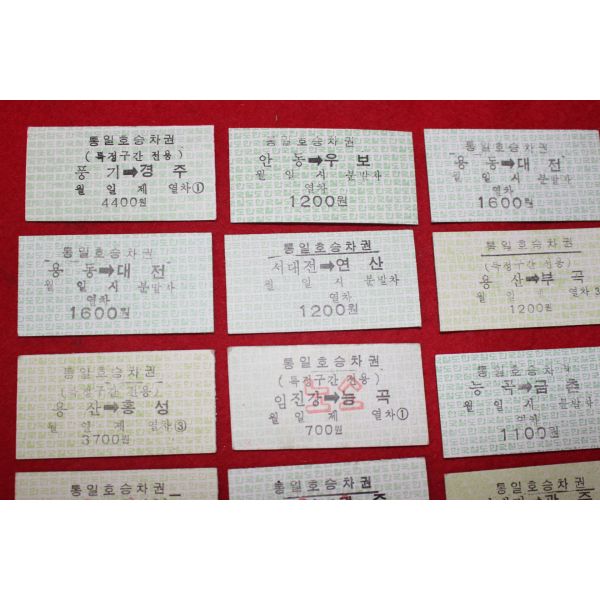 통일호승차권
(특정구간 전용)
풍 기➡경 주
월 일 제 열차①
4400원
통일호승차권
안 동➡우 보
월 일 시 분발차
열차
1200원
통일호승차권
용 동➡대 전
월 일 시 분발차
열차
1600원
통일호승차권
용 동➡대 전
월 일 시 분발차
열차
1600원
통일호승차권
서대전➡연 산
월 일 시 분발차
열차
1200원
통일호승차권
(특정구간 전용)
용 산➡부 곡
월 일 제 열차3
1200원
통일호승차권
(특정구간 전용)
용 산➡홍 성
월 일 제 열차③
3700원
통일호승차권
(특정구간 전용)
임진강➡능 곡
월 일 제 열차①
700원
통일호승차
능 곡➡금 촌
월 일 시 분발차
열차
1100원
통일호승차권
통일호승차권
통일호승차권